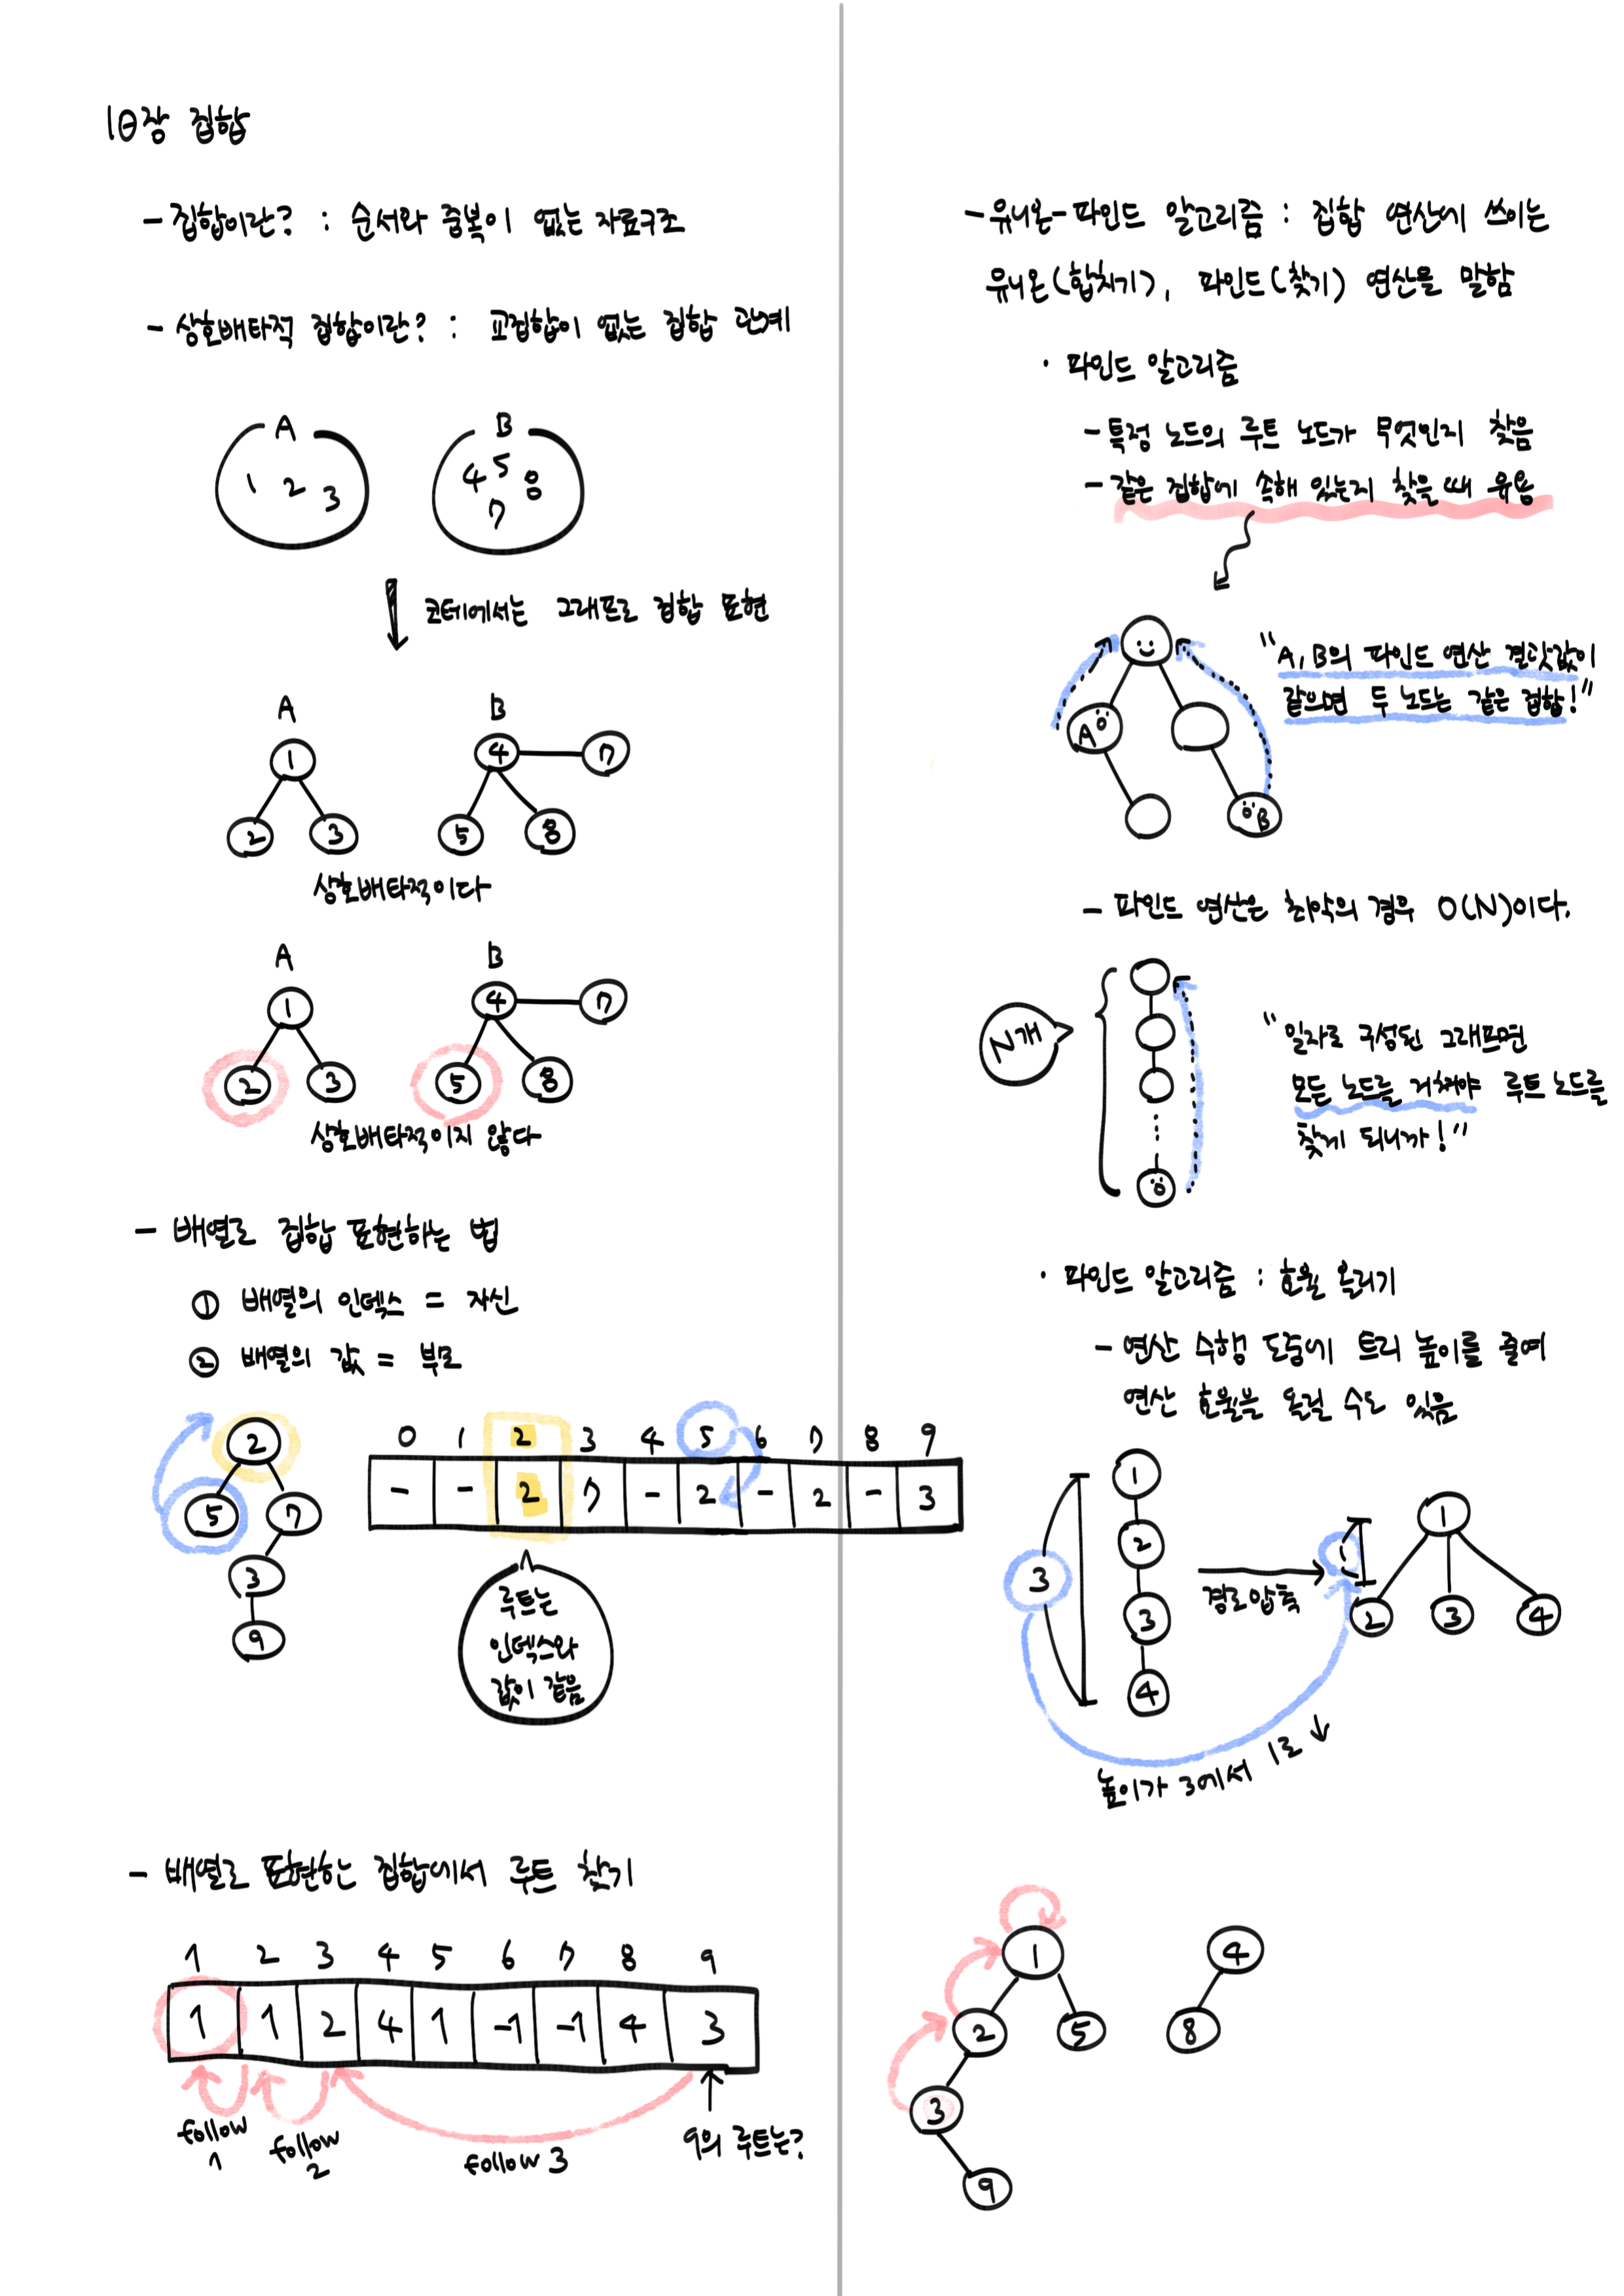 10장 집합
- 집합이란? : 순서와 중복이 없는 자료구조
- 상호배타적 집합이란? : 교집합이 없는 집합 관계
A B
1 2 3
4 5 8 7
코테에서는 그래프로 집합 표현
A B
1 4 7
2 3 5 8
상호배타적이다
A B
1 4 7
2 3 5 8
상호배타적이지 않다
- 배열로 집합 표현하는 법
① 배열의 인덱스 = 자신
② 배열의 값 = 부모
2
5 7
3
9
0 1 2 3 4 5 6 7 8 9
- - 2 7 - 2 - 2 - 3
루트는
인덱스와
값이 같음
- 배열로 표현하는 집합에서 루트 찾기
1 2 3 4 5 6 7 8 9
1 1 2 4 1 -1 -1 4 3
follow 1
follow 2
follow 3
9의 루트는?
- 유니온-파인드 알고리즘 : 집합 연산에 쓰이는
유니온(합치기), 파인드(찾기) 연산을 말함
· 파인드 알고리즘
- 특정 노드의 루트 노드가 무엇인지 찾음
- 같은 집합에 속해 있는지 찾을 때 유용
A
B
"A, B의 파인드 연산 결괏값이
같으면 두 노드는 같은 집합!"
- 파인드 연산은 최악의 경우 O(N)이다.
N개
"일자로 구성된 그래프면
모든 노드를 거쳐야 루트 노드를
찾게 되니까!"
· 파인드 알고리즘 : 효율 올리기
- 연산 수행 도중에 트리 높이를 줄여
연산 효율을 올릴 수도 있음
3
1
2
3
4
경로압축
1
1
2 3 4
높이가 3에서 1로 ↓
1 4
2 5 8
3
9